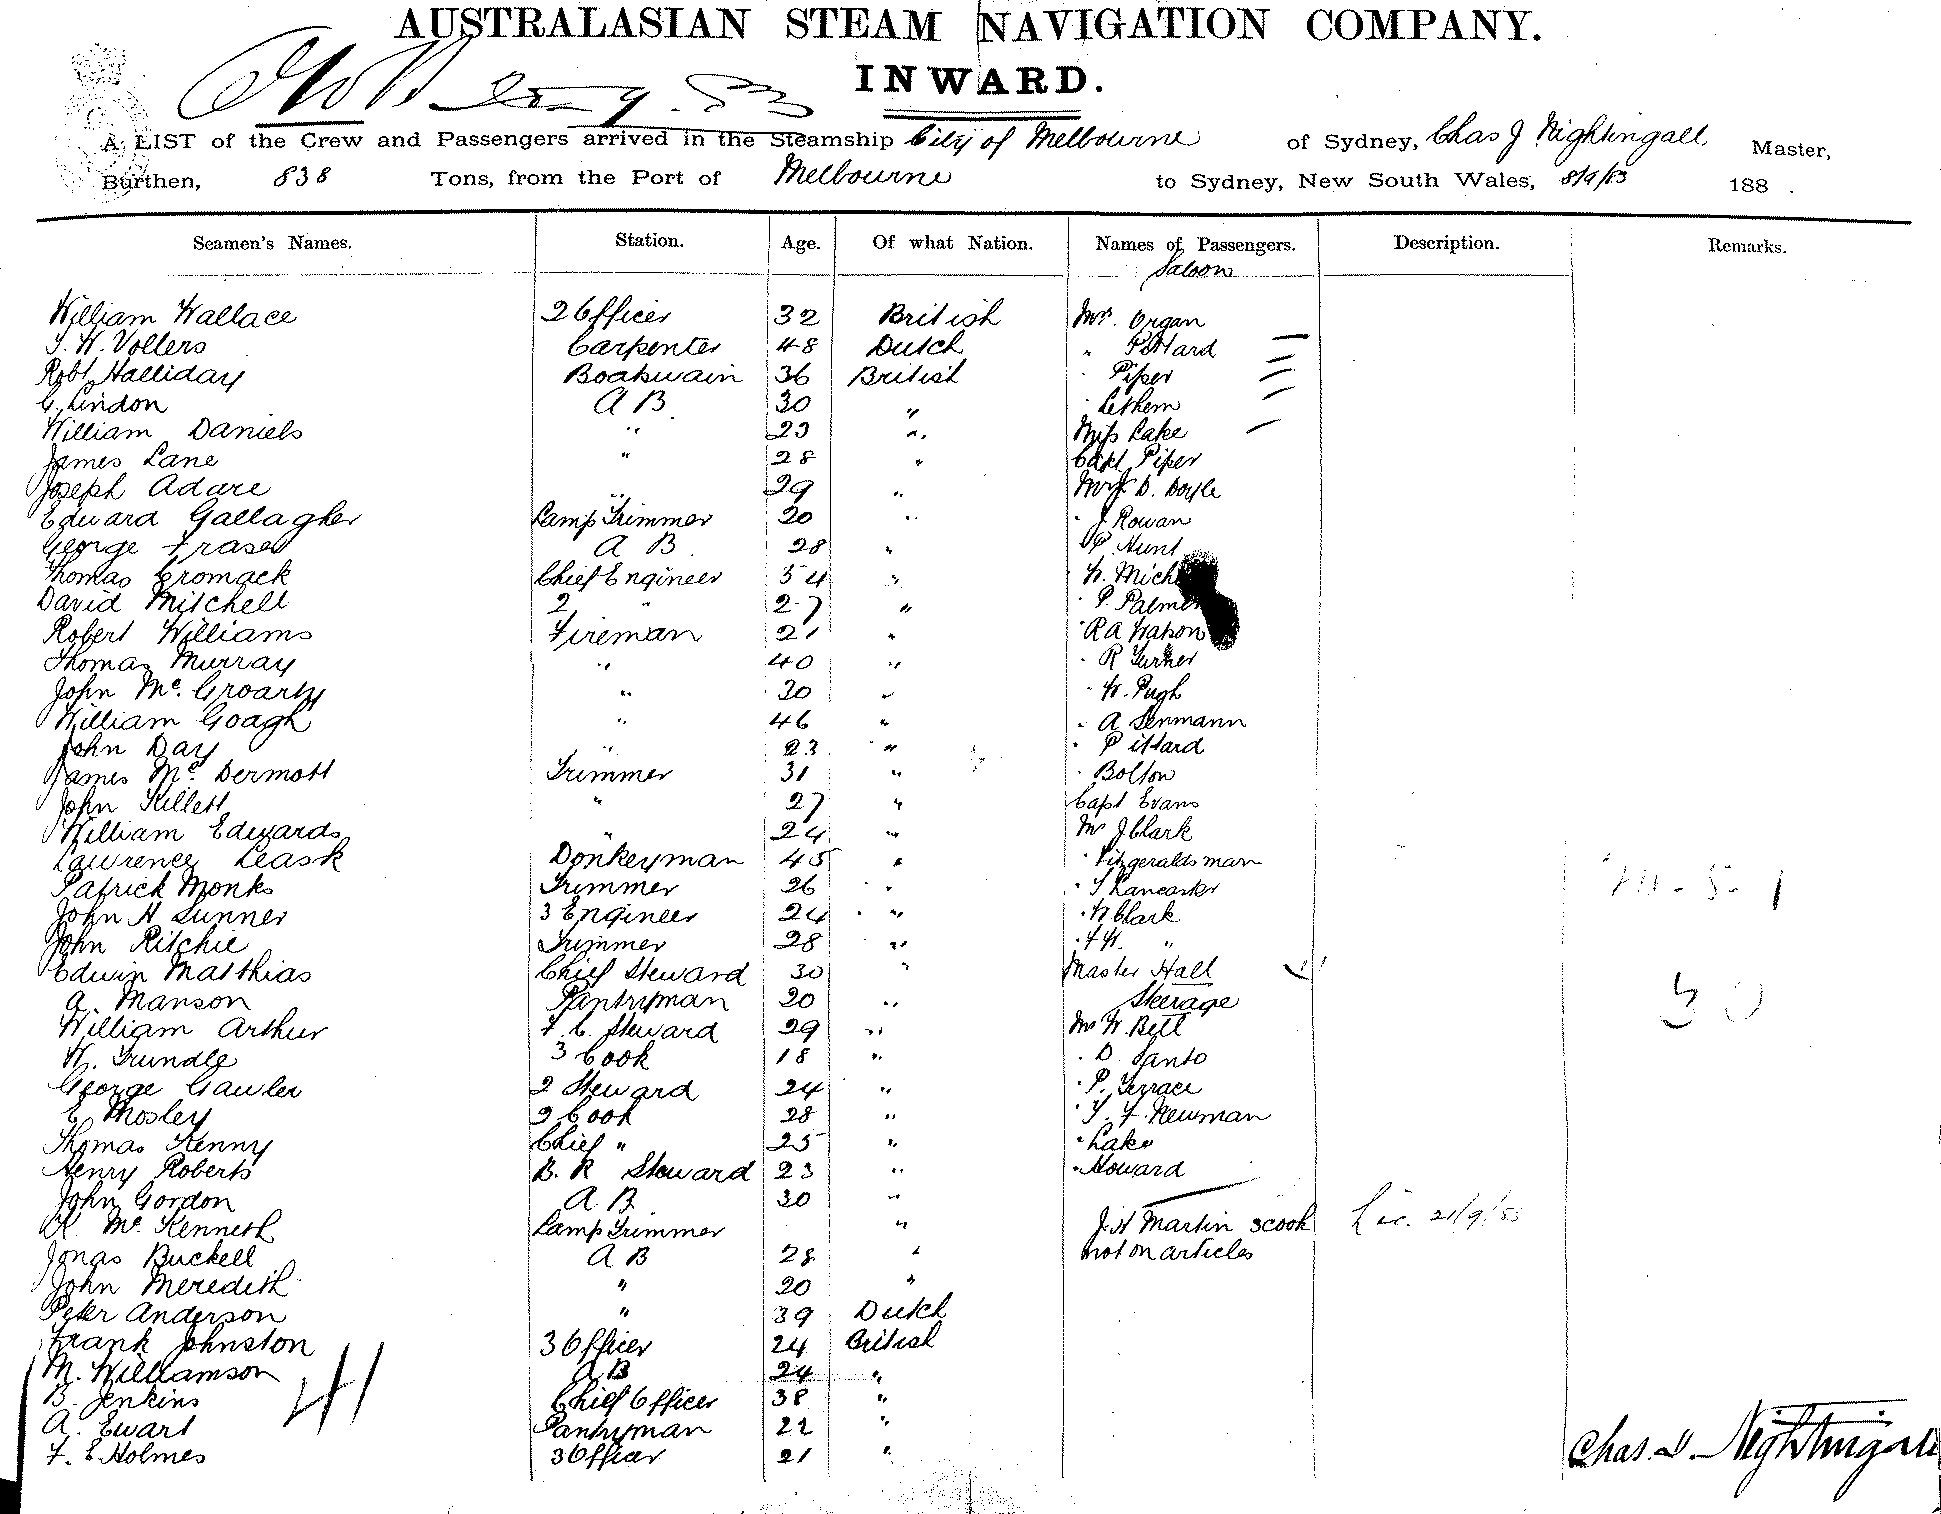 AUSTRALASIAN STEAM NAVIGATION COMPANY.
INWARD.
A LIST of the Crew and Passengers arrived in the Steamship City of Melbourne of Sydney, Chas J Nightingall Master,
Burthen, 838 Tons, from the Port of Melbourne to Sydney, New South Wales, 8/9/83 188 .
Seamen's Names. Station. Age. Of what Nation. Names of Passengers. Description. Remarks.
Saloon
William Wallace 2 Officer 32 British Mrs. Organ
J. W. Vollers Carpenter 48 Dutch " Pittard
Robt Halliday Boatswain 36 British " Piper
C. Lindon A B 30 " " Lethem
William Daniels " 23 " Miss Lake
James Lane " 28 " Capt Piper
Joseph Adare " 29 " Mr D. Doyle
Edward Gallagher Lamp Trimmer 20 " " J Rowan
George Fraser A B 28 " " P. Hunt
Thomas Cromack Chief Engineer 54 " " W. Mich
David Mitchell 2 " 27 " " P. Palmer
Robert Williams Fireman 21 " " R A Watson
Thomas Murray " 40 " " R Turner
John Mc. Groarty " 30 " " W. Pugh
William Goagh " 46 " " A Senmann
John Day " 23 " " Pittard
James Mc. Dermott Trimmer 31 " " Bolton
John Killett " 27 " Capt Evans
William Edwards " 24 " Mr J Clark
Lawrence Leask Donkeyman 45 " " Fitzgeraldsman
Patrick Monks Trimmer 26 " " T Lancaster
John H Sunner 3 Engineer 24 " " W Clark
John Ritchie Trimmer 28 " " F W. "
Edwin Matthias Chief Steward 30 " Master Hall
A. Manson Pantryman 20 " Steerage
William Arthur F. C. Steward 29 " Mr W. Bell
W. Trundle 3 Cook 18 " " D. Santo
George Gawler 2 Steward 24 " " P. Terrace
E. Mosley 2 Cook 28 " " T. F. Newman
Thomas Kenny Chief " 25 " " Lake
Henry Roberts B. R Steward 23 " " Howard
John Gordon A. B. 30 "
K. Mc. Kenneth Lamp Trimmer " J. H Martin 3 cook Lic. 21/9/83
Jonas Buckell A B 28 " not on articles
John Meredith " 20 "
Peter Anderson " 39 Dutch
Frank Johnston 3 Officer 24 British
M. Williamson A B 24 "
B. Jenkins Chief Officer 38 "
A. Ewart Pantryman 22 "
F. E. Holmes 3 Officer 21 "
41
30
Chas. J. Nightingall